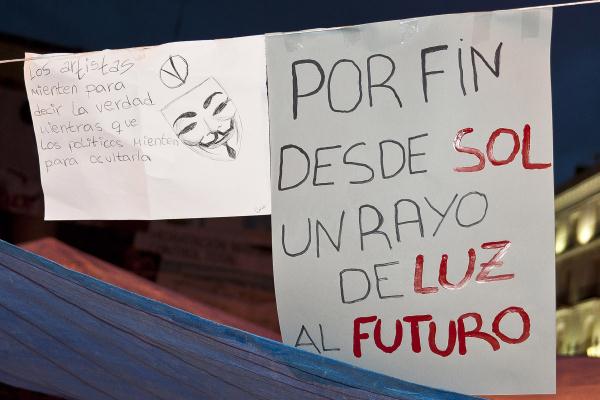 Los artistas
mienten para
decir la verdad
mientras que
los políticos mienten
para ocultarla
POR FIN
DESDE SOL
UN RAYO
DE LUZ
AL FUTURO